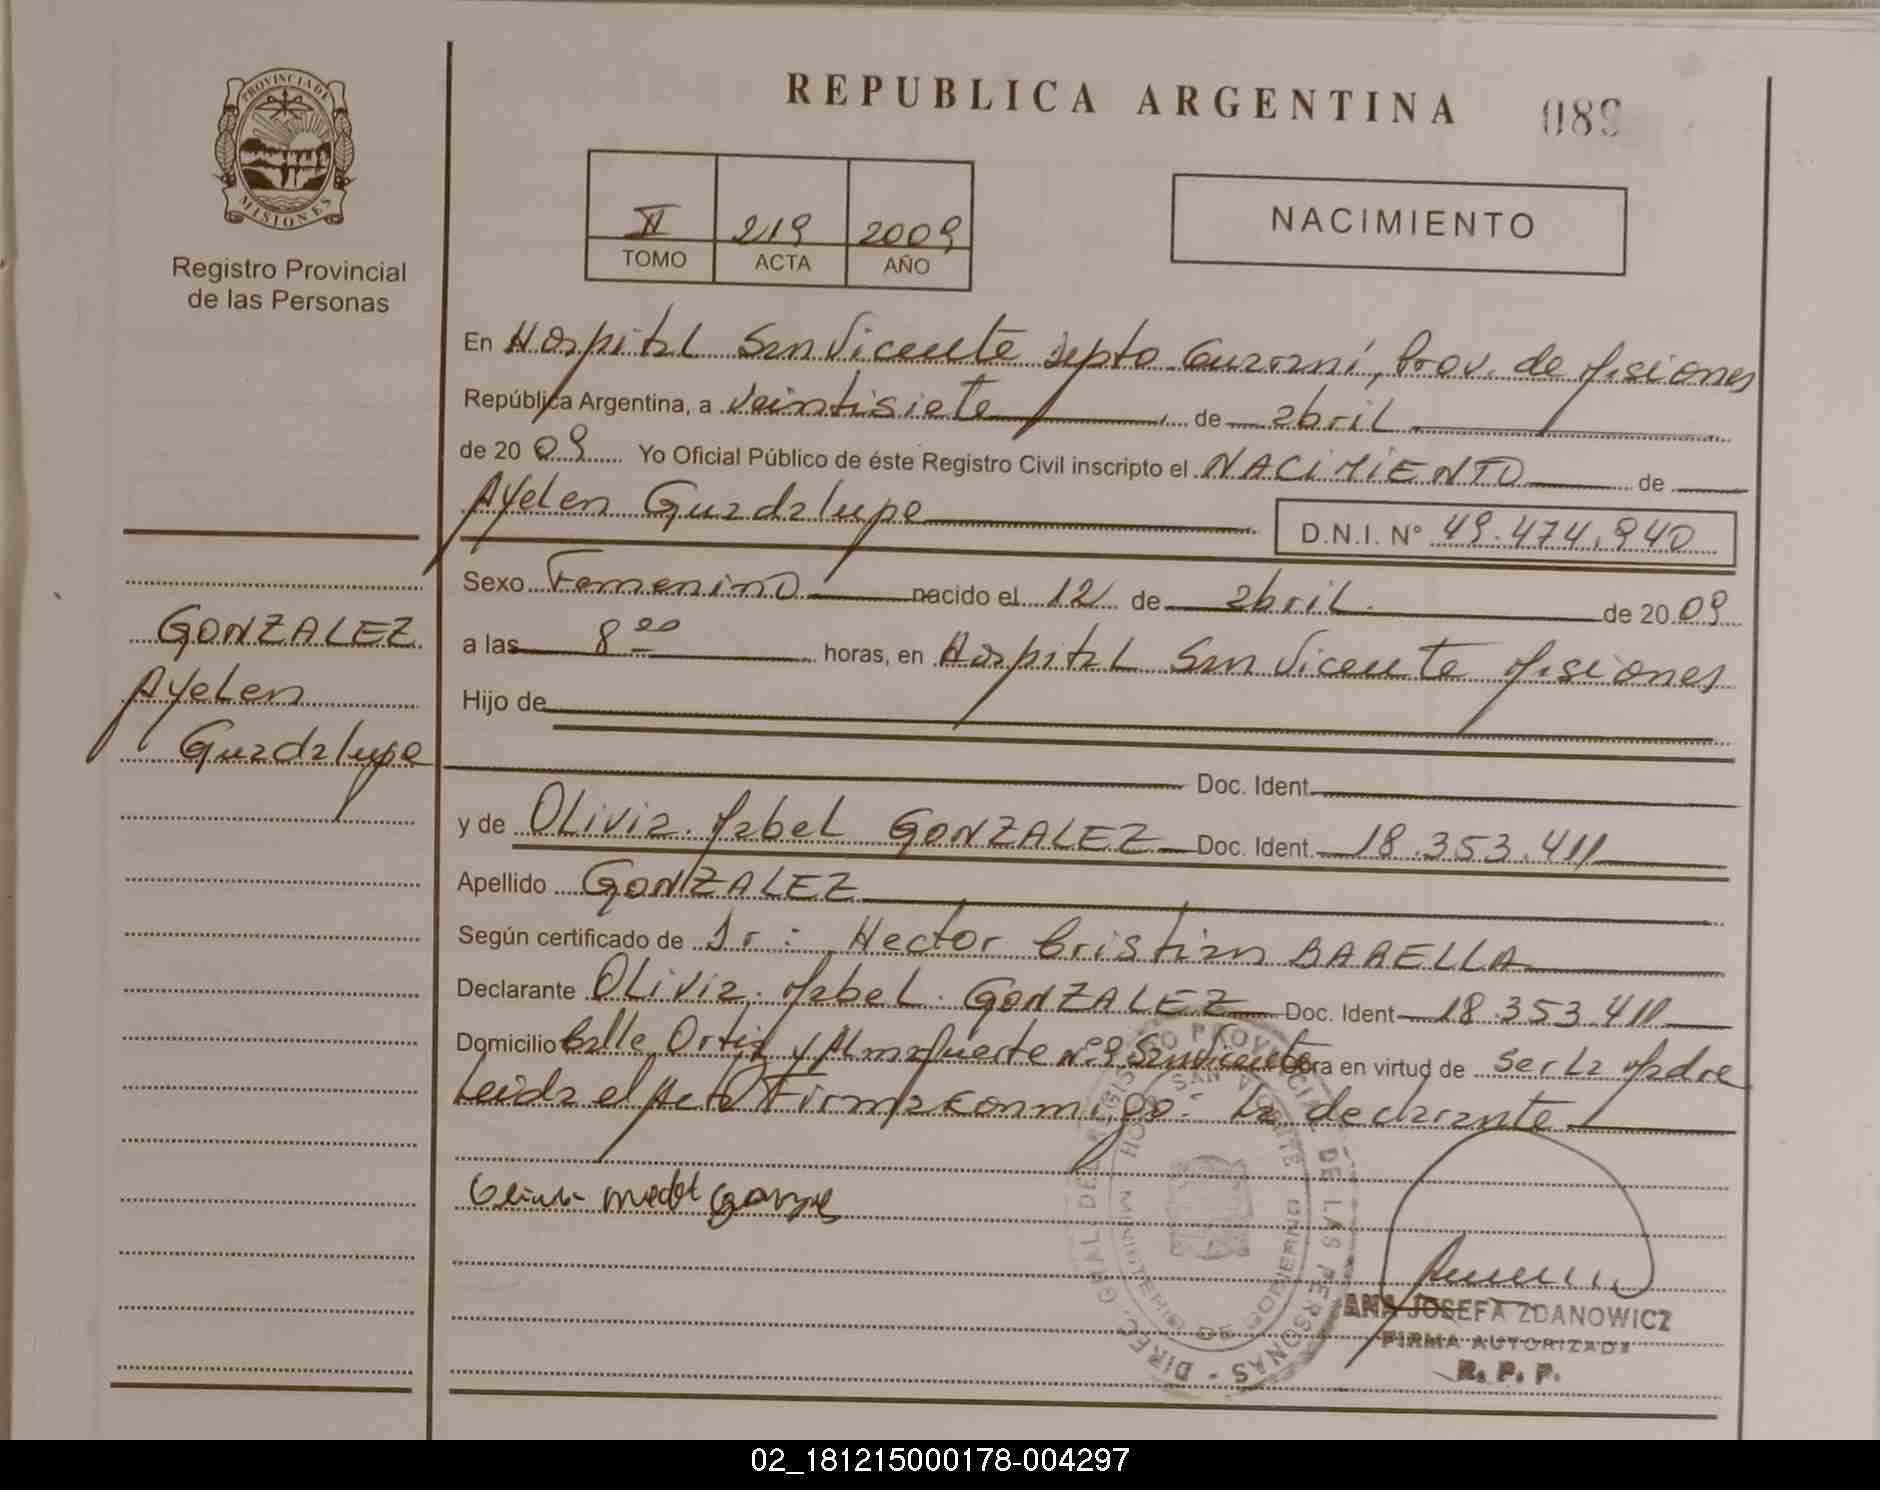 PROVINCIA DE
MISIONES
Registro Provincial
de las Personas
GONZALEZ
Ayelen
Guadalupe
REPUBLICA ARGENTINA 089
II 219 2009
TOMO ACTA AÑO
NACIMIENTO
En Hospital San Vicente Depto Guaraní, Prov. de Misiones
República Argentina, a veintisiete de abril
de 20 09 Yo Oficial Público de éste Registro Civil inscripto el NACIMIENTO de
Ayelen Guadalupe D.N.I. Nº 49.474.940
Sexo Femenino nacido el 12 de abril de 20 09
a las 8 00 horas, en Hospital San Vicente Misiones
Hijo de
Doc. Ident.
y de Olivia Mabel GONZALEZ Doc. Ident. 18.353.411
Apellido GONZALEZ
Según certificado de Dr: Hector Cristian BARELLA
Declarante Olivia Mabel GONZALEZ Doc. Ident 18.353.411
Domicilio Calle Ortiz y Almafuerte nº 9 San Vicente Obra en virtud de ser la Madre
Leida el Acta Firma conmigo: la declarante
Olivia Mabel Gonzalez
DIREC. GRAL DEL REGISTRO PROVINCIAL DE LAS PERSONAS -
MINISTERIO DE GOBIERNO
ANA JOSEFA ZDANOWICZ
FIRMA AUTORIZADA
R. P. P.
02_181215000178-004297